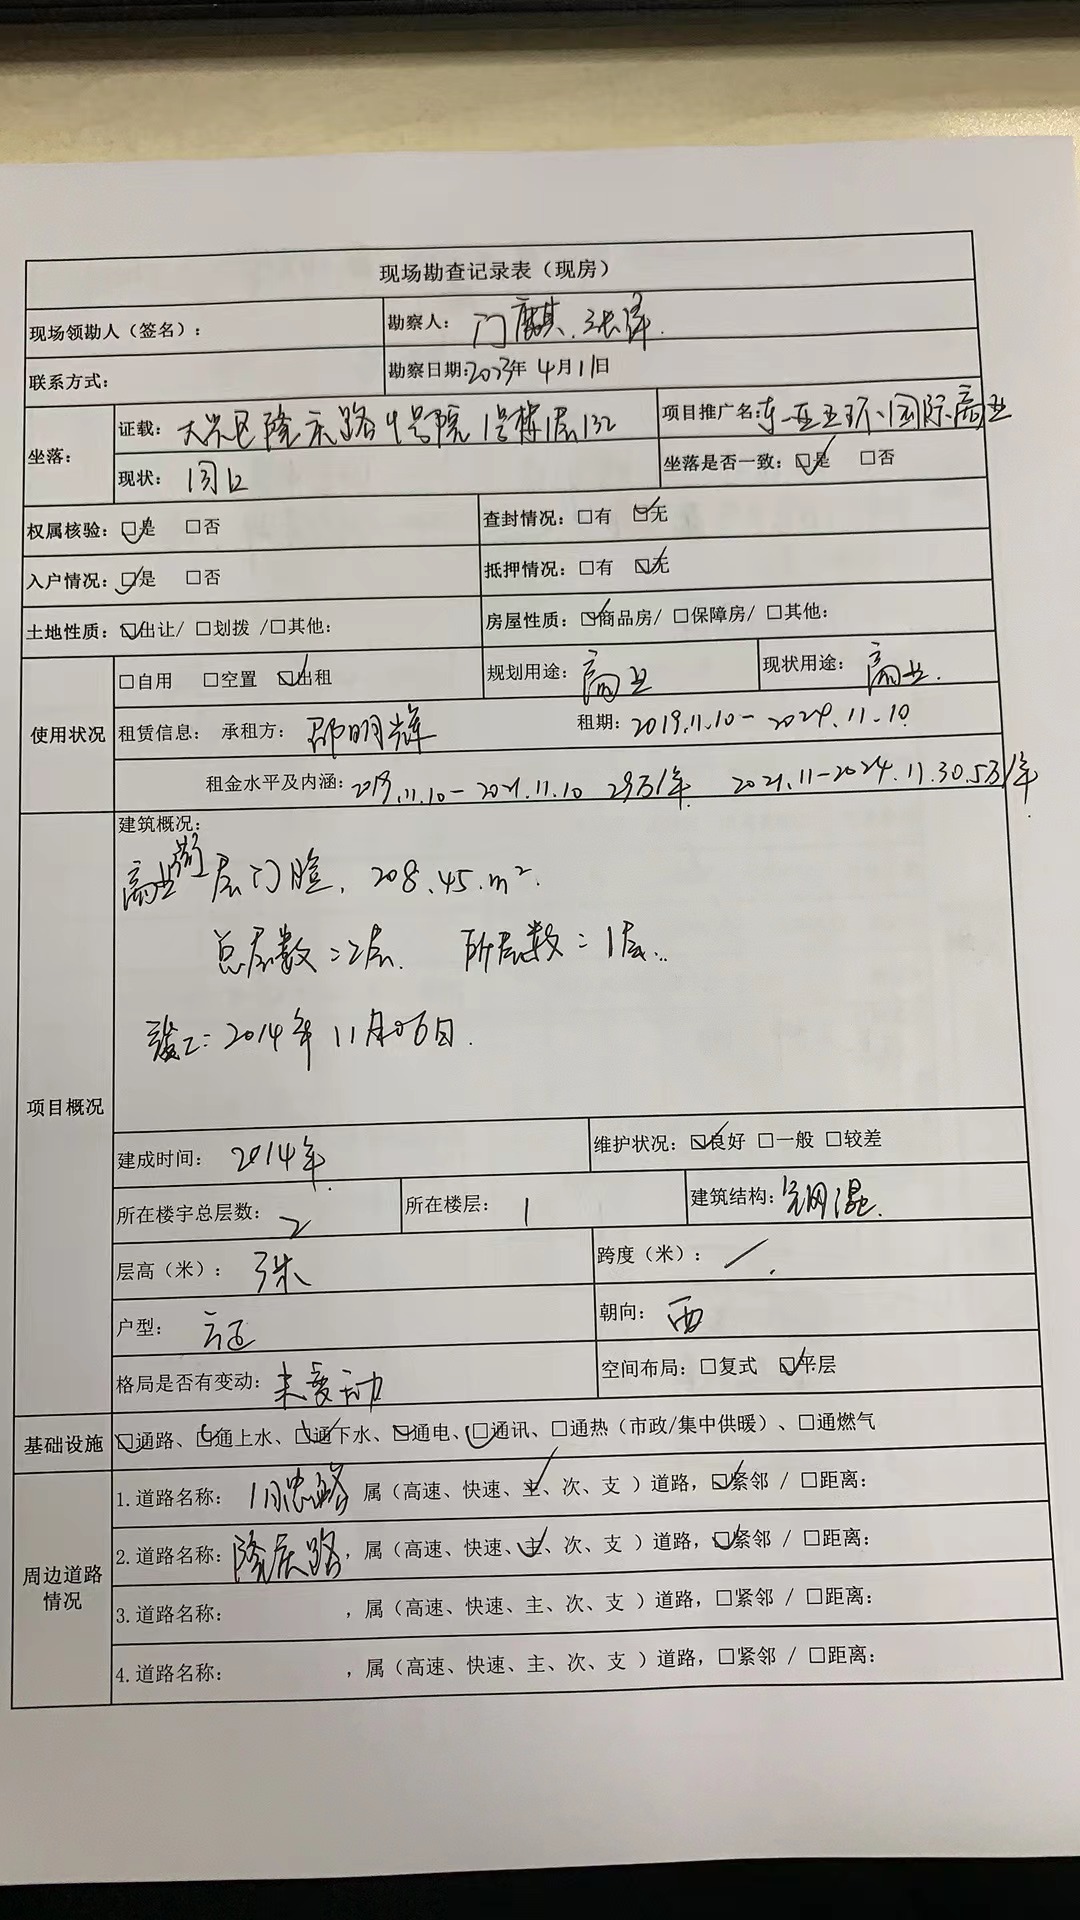 现场勘查记录表（现房）
现场领勘人（签名）：
勘察人：门麒、张泽
联系方式：
勘察日期:2023年4月11日
坐落：
证载：大兴区隆庆路9号院1号楼1层132
项目推广名:东亚五环国际商业
现状：同上
坐落是否一致：☑是 □否
权属核验：☑是 □否
查封情况：□有 ☑无
入户情况：☑是 □否
抵押情况：□有 ☑无
土地性质：☑出让/ □划拨 /□其他:
房屋性质：☑商品房/ □保障房/ □其他:
使用状况
□自用 □空置 ☑出租
规划用途：商业
现状用途：商业.
租赁信息： 承租方：邵明辉
租期：2019.11.10－2024.11.10
租金水平及内涵:2019.11.10－2021.11.10 29万/年 2021.11－2024.11.30.5万/年
项目概况
建筑概况：
商业 层门 . 208.45.m².
总层数=2层. 所层数=1层..
竣工：2014年11月06日.
建成时间：2014年
维护状况：☑良好 □一般 □较差
所在楼宇总层数：2
所在楼层：1
建筑结构：钢混.
层高（米）：3米
跨度（米）：/.
户型：
朝向：西
格局是否有变动：未变动
空间布局：□复式 ☑平层
基础设施
☑通路、☑通上水、☑通下水、☑通电、☑通讯、□通热（市政/集中供暖）、□通燃气
周边道路情况
1.道路名称： 路 属（高速、快速、主✓、次、支 ）道路，☑紧邻 / □距离：
2.道路名称：隆庆路，属（高速、快速、主✓、次、支 ）道路，☑紧邻 / □距离：
3.道路名称： ，属（高速、快速、主、次、支 ）道路，□紧邻 / □距离：
4.道路名称： ，属（高速、快速、主、次、支 ）道路，□紧邻 / □距离：